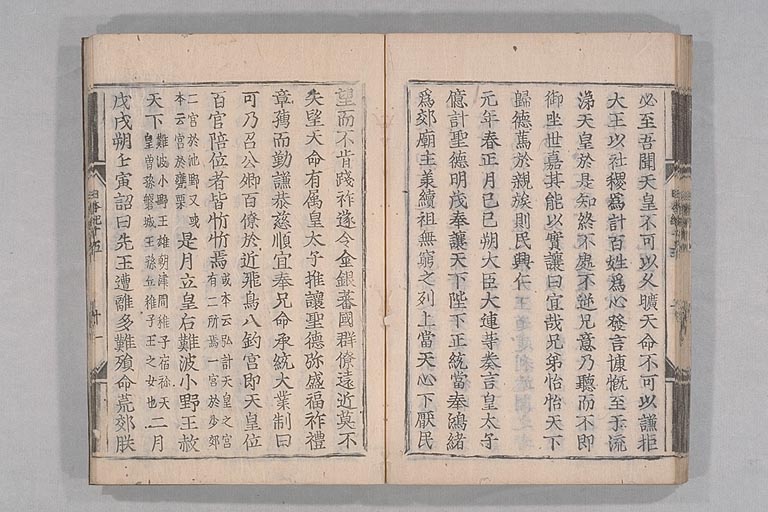 必至吾聞天皇不可以久曠天命不可以謙拒
大王以社稷為計百姓為心發言慷慨至于流
涕天皇於是知終不處不逆兄意乃聽而不即
御坐世嘉其能以實讓曰宜哉兄弟怡怡天下
歸德篤於親族則民興仁
元年春正月己巳朔大臣大連等奏言皇太子
億計聖德明茂奉讓天下陛下正統當奉鴻緒
為郊廟主義續祖無窮之列上當天心下厭民
望而不肯踐祚遂令金銀蕃國群僚遠近莫不
失望天命有属皇太子推讓聖德弥盛福祚禮
章孺而勤謙恭慈順宜奉兄命承統大業制曰
可乃召公卿百僚於近飛鳥八釣宮即天皇位
百官陪位者皆忻忻焉或本云弘計天皇之宮
有二所焉一宮於少郊
二宮於池野又或
本云宮於甕栗是月立皇后難波小野王赦
天下難波小野王雄朝津間稚子宿祢天
皇曽孫磐城王孫丘稚子王之女也二月
戊戌朔壬寅詔曰先王遭離多難殞命荒郊朕
十一